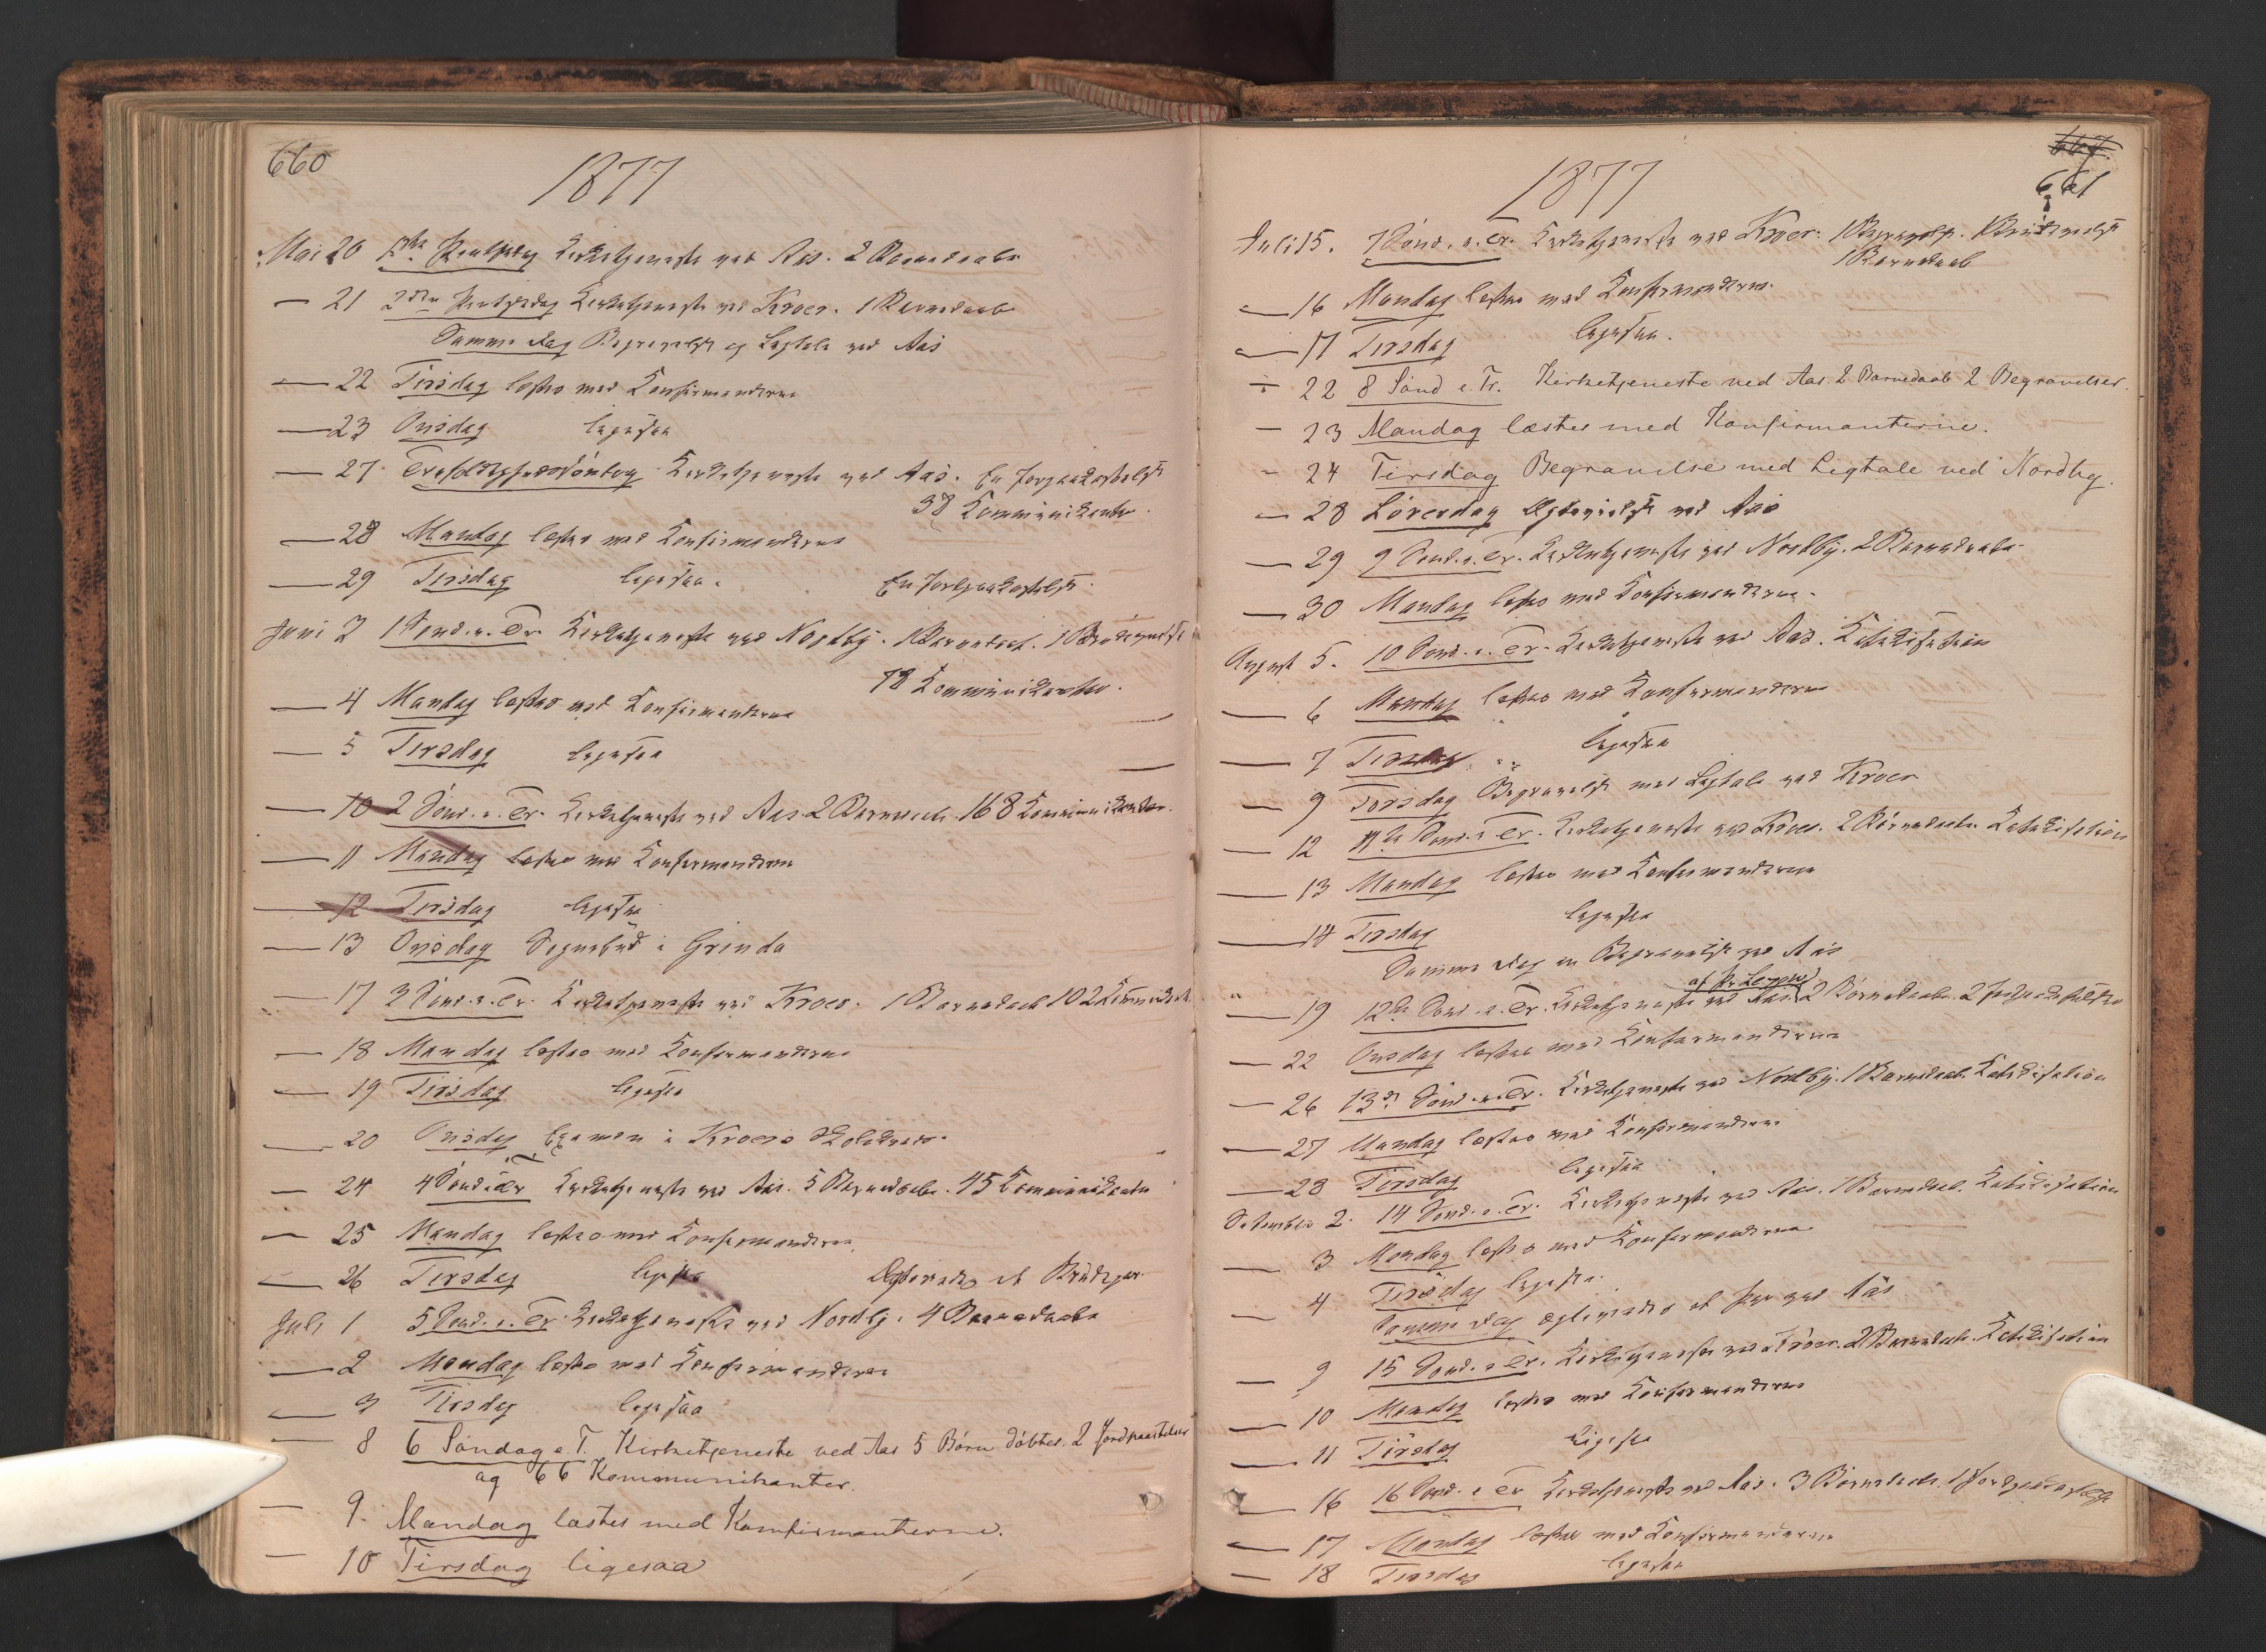 660
1877
Mai 20 1ste Pintsedag Kirketjeneste ved Aas. 2 Barnedaabe
— 21 2den Pintsedag Kirketjeneste ved Kroer. 1 Barnedaab
Samme Dag Begravelse og Ligtale ved Aas
— 22 Tirsdag læstes med Konfirmanderne
— 23 Onsdag ligesaa
— 27 Trefoldighedssöndag Kirketjeneste ved Aas. En Jordpaakastelse
38 Kommunikanter.
— 28 Mandag læstes med Konfirmanderne
— 29 Tirsdag ligesaa. En Jordpaakastelse.
Juni 3 1 Sönd. e. Tr. Kirketjeneste ved Nordby. 1 Barnedaab. 1 Brudevielse
78 Kommunikanter.
— 4 Mandag læstes med Konfirmanderne
— 5 Tirsdag ligesaa
— 10 2 Sönd. e. Tr. Kirketjeneste ved Aas. 2 Barnedaab. 168 Kommunikanter.
— 11 Mandag læstes med Konfirmanderne
— 12 Tirsdag ligesaa
— 13 Onsdag Sognebud i Grinda
— 17 3 Sönd. e. Tr. Kirketjeneste ved Kroer. 1 Barnedaab 102 Kommunik.
— 18 Mandag læstes med Konfirmanderne
— 19 Tirsdag ligesaa
— 20 Onsdag Examen i Kroers Skolekreds.
— 24 4 Sönd. e. Tr Kirketjeneste ved Aas. 5 Barnedaabe. 45 Kommunikanter
— 25 Mandag læstes med Konfirmanderne
— 26 Tirsdag ligesaa Ægteviedes et Brudepar.
Juli 1 5 Sönd. e. Tr. Kirketjeneste ved Nordby. 4 Barnedaabe
— 2 Mandag læstes med Konfirmanderne
— 3 Tirsdag ligesaa
— 8 6 Söndag e. T. Kirketjeneste ved Aas 5 Börn döbtes. 2 Jordpaakastelser
og 66 Kommunikanter.
— 9. Mandag læstes med Konfirmanterne.
— 10 Tirsdag ligesaa
661
1877
Juli 15. 7 Sönd. e. Tr. Kirketjeneste ved Kroer. 1 Begravelse. 1 Brudevielse
1 Barnedaab
— 16 Mandag læstes med Konfirmanderne.
— 17 Tirsdag ligesaa.
— 22 8 Sönd e. Tr. Kirketjeneste ved Aas. 2 Barnedaab 2 Begravelser.
— 23 Mandag læstes med Konfirmanterne.
- 24 Tirsdag Begravelse med Ligtale ved Nordby.
— 28 Löverdag Ægtevielse ved Aas
— 29 9 Sönd. e. Tr. Kirketjeneste ved Nordby. 2 Barnedaabe
— 30 Mandag læstes med Konfirmanderne.
August 5. 10 Sönd. e. Tr. Kirketjeneste ved Aas. Katekisation
— 6 Mandag læstes med Konfirmanderne
— 7 Tirsdag ligesaa
— 9 Torsdag Begravelse med Ligtale ved Kroer
— 12 11te Sönd. e Tr. Kirketjeneste ved Kroer. 2 Barnedaabe Katekisation
— 13 Mandag læstes med Konfirmanderne
— 14 Tirsdag ligesaa
Samme Dag en Begravelse ved Aas
— 19 12te Sönd. e. Tr. Kirketjeneste ved Aas 2 Barnedaabe. 2 Jordpaakastelser
— 22 Onsdag læstes med Konfirmanderne
— 26 13de Sönd. e. Tr. Kirketjeneste ved Nordby. 1 Barnedaab. Katekisation
— 27 Mandag læstes med Konfirmanderne
— 28 Tirsdag ligesaa
September 2. 14 Sönd. e. Tr. Kirketjeneste ved Aas. 1 Barnedaab. Katekisation
— 3 Mandag læstes med Konfirmanderne
— 4 Tirsdag ligesaa.
Samme Dag ægteviedes et Par ved Aas
— 9 15 Sönd. e Tr. Kirketjeneste ved Kroer. 2 Barnedaab. Katekisation
— 10 Mandag læstes med Konfirmanderne
— 11 Tirsdag ligesaa
— 16 16 Sönd. e Tr Kirketjeneste ved Aas. 3 Barnedaab. 1 Jordpaakastelse
— 17 Mandag læstes med Konfirmanderne
— 18 Tirsdag ligesaa